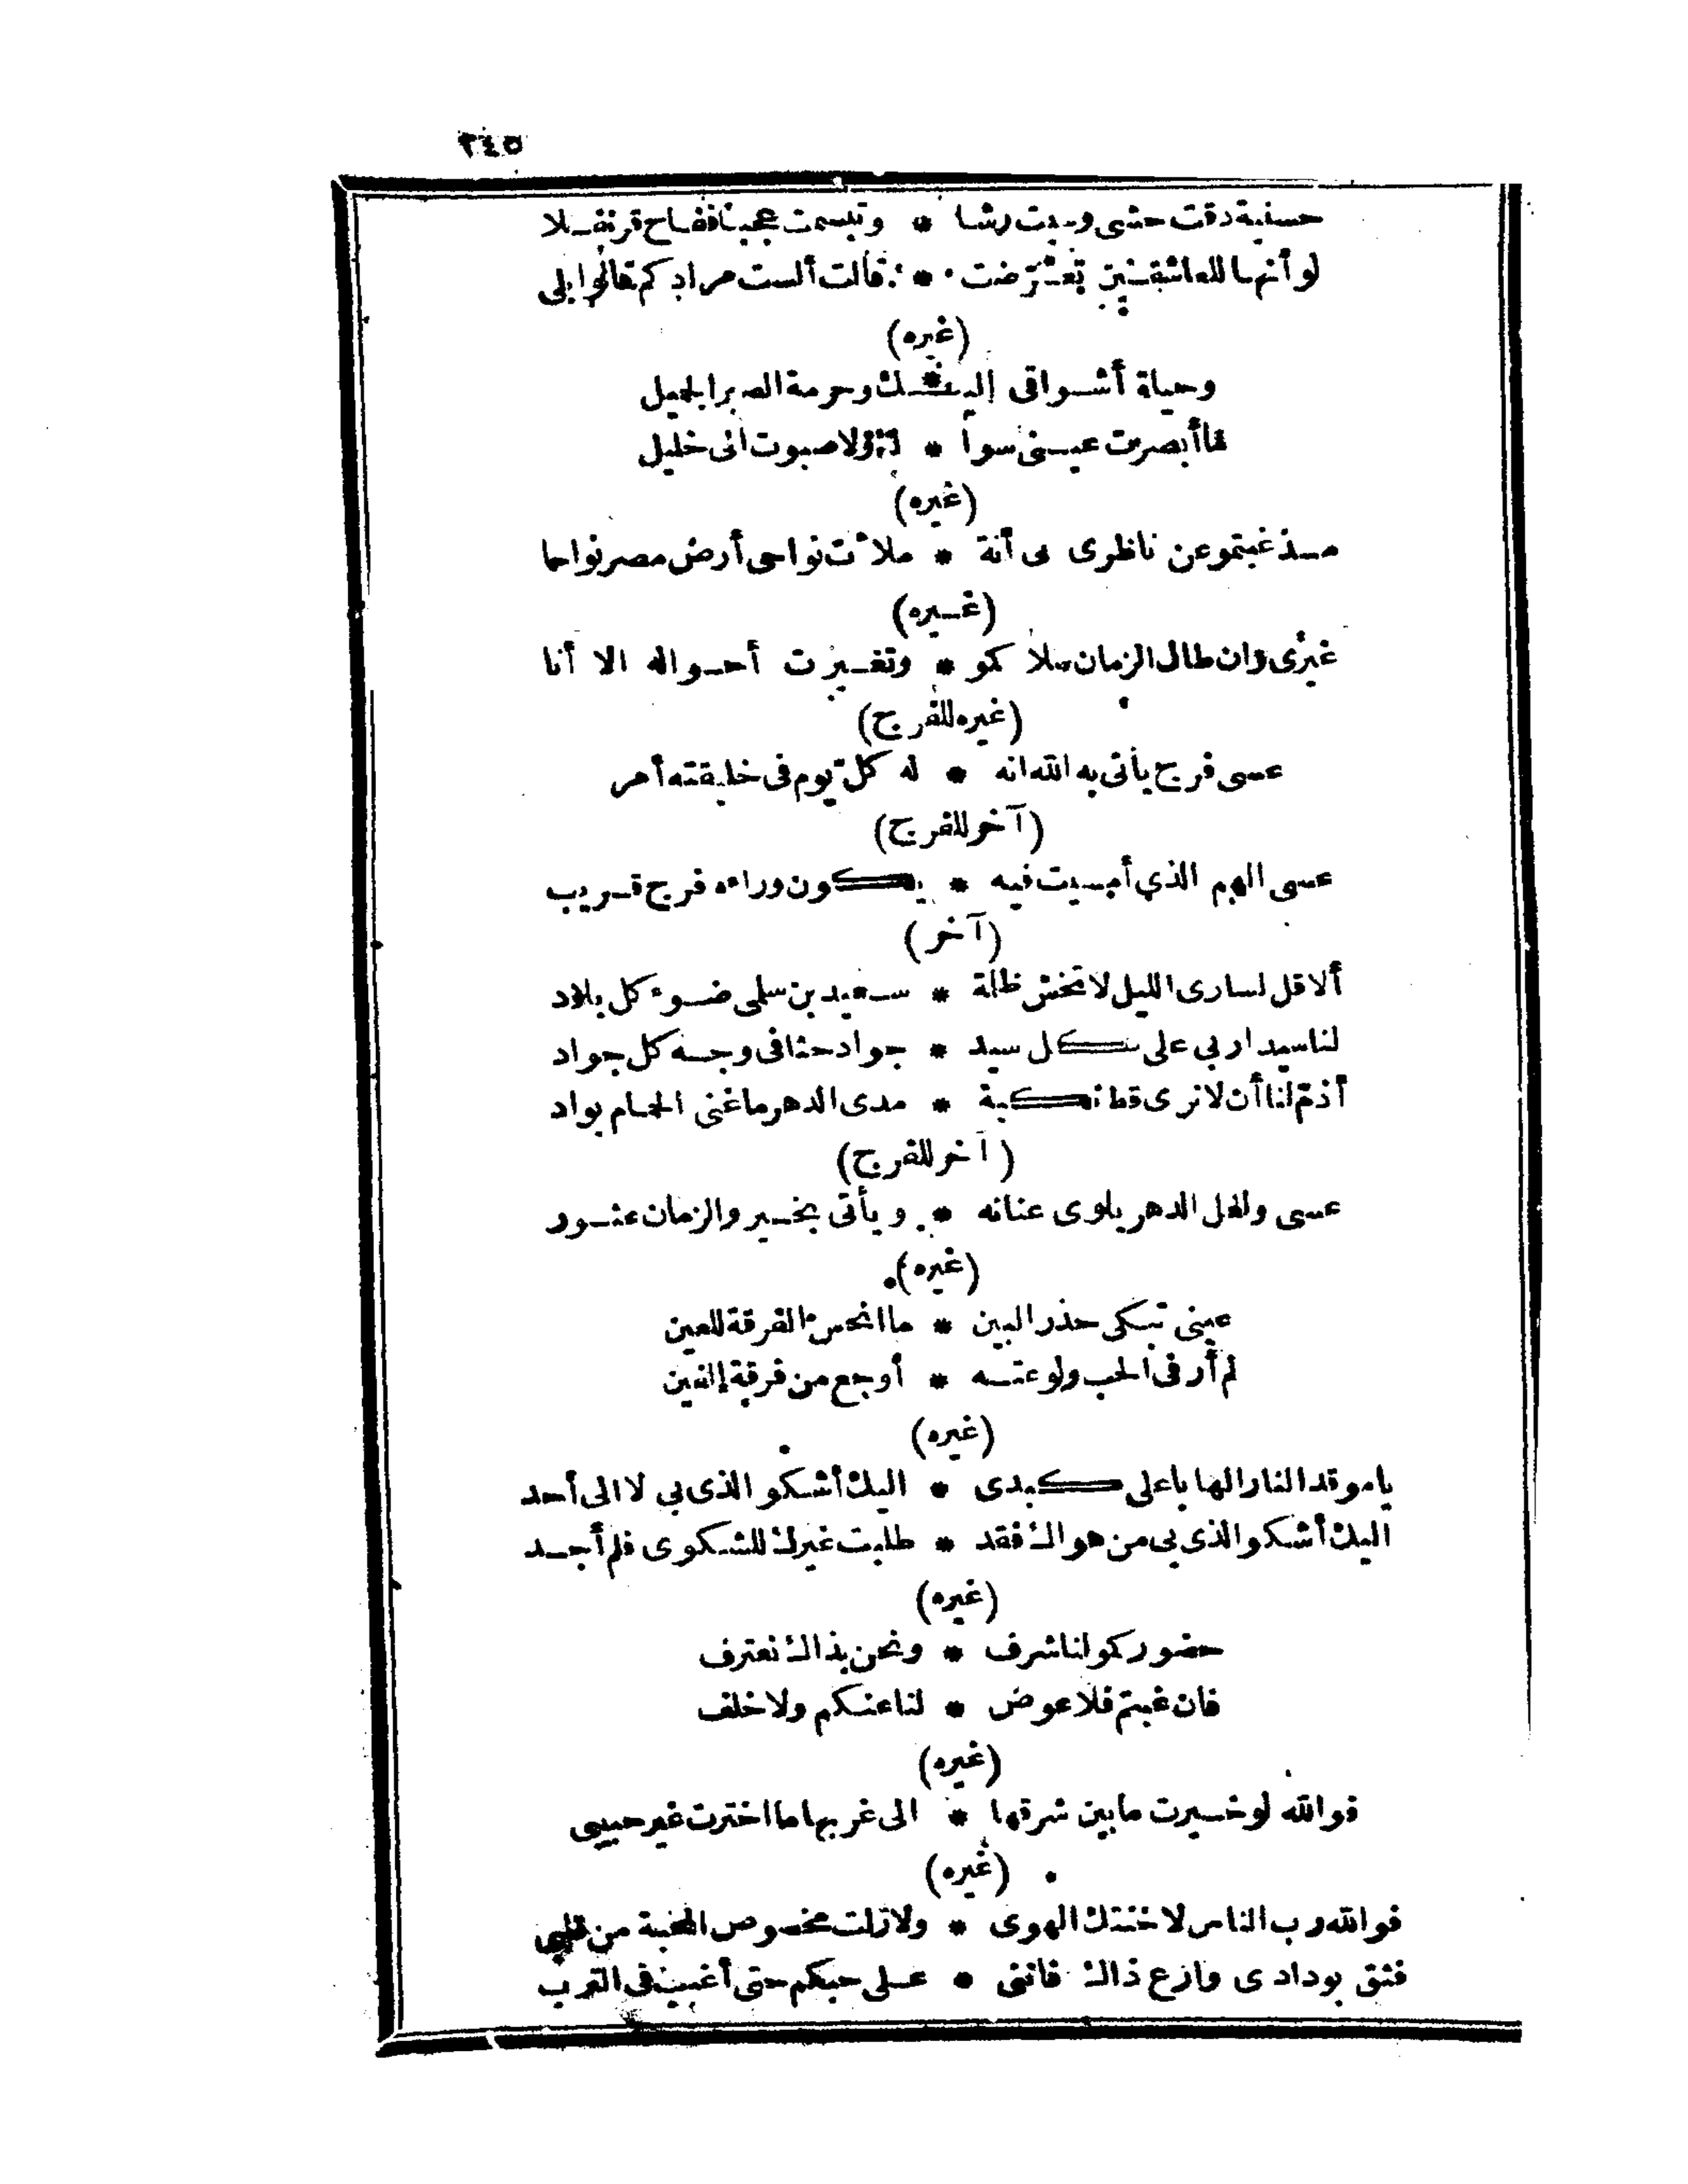 ٢٤٥
حسنية دقت حشى وسبت رشا * وتبسمت عجبا ففاح قرنفلا
لو أنها للعاشقين تعرضت * قالت ألست مرادكم قالوا بلى
(غيره)
وحياة أشواقى إليـك * وحرمة الصبر الجميل
ماأبصرت عينى سوا * ك ولا صبوت الى خليل
(غيره)
مذ غبتمو عن ناظرى لى أنة * ملأت نواحى أرض مصر نواحا
(غيره)
غيرى وان طال الزمان سلاكمو * وتغيرت أحواله الا أنا
(غيره للفرج)
عسى فرج يأتى به الله انه * له كل يوم فى خليقته أمر
(آخر للفرج)
عسى الهم الذي أمسيت فيه * يكون وراءه فرج قريب
(آخر)
ألا قل لسارى الليل لا تخش ظلمة * سعيد بن سلمى ضوء كل بلاد
لنا سيد اربي على كل سيد * جواد حثا فى وجه كل جواد
أذم لنا أن لا نرى قط نكبة * مدى الدهر ما غنى الحمام بواد
(آخر للفرج)
عسى ولعل الدهر يلوى عنانه * ويأتى بخير والزمان عثور
(غيره)
عينى تبكى حذر البين * ما انحس الفرقة للعين
لم أر فى الحب ولوعته * أوجع من فرقة إلفين
(غيره)
يا موقد النار الهابا على كبدى * اليك أشكو الذى بي لا الى أحد
اليك أشكو الذى بى من هواك فقد * طلبت غيرك للشكوى فلم أجد
(غيره)
حضوركمو لنا شرف * ونحن بذاك نعترف
فان غبتم فلا عوض * لنا عنكم ولا خلف
(غيره)
فوالله لو خيرت ما بين شرقها * الى غربها ما اخترت غير حبيبى
(غيره)
فوالله رب الناس لا خنتك الهوى * ولا زلت مخصوص المحبة من قلبى
فثق بودادى وارع ذاك فاننى * على حبكم حتى أغيب فى الترب